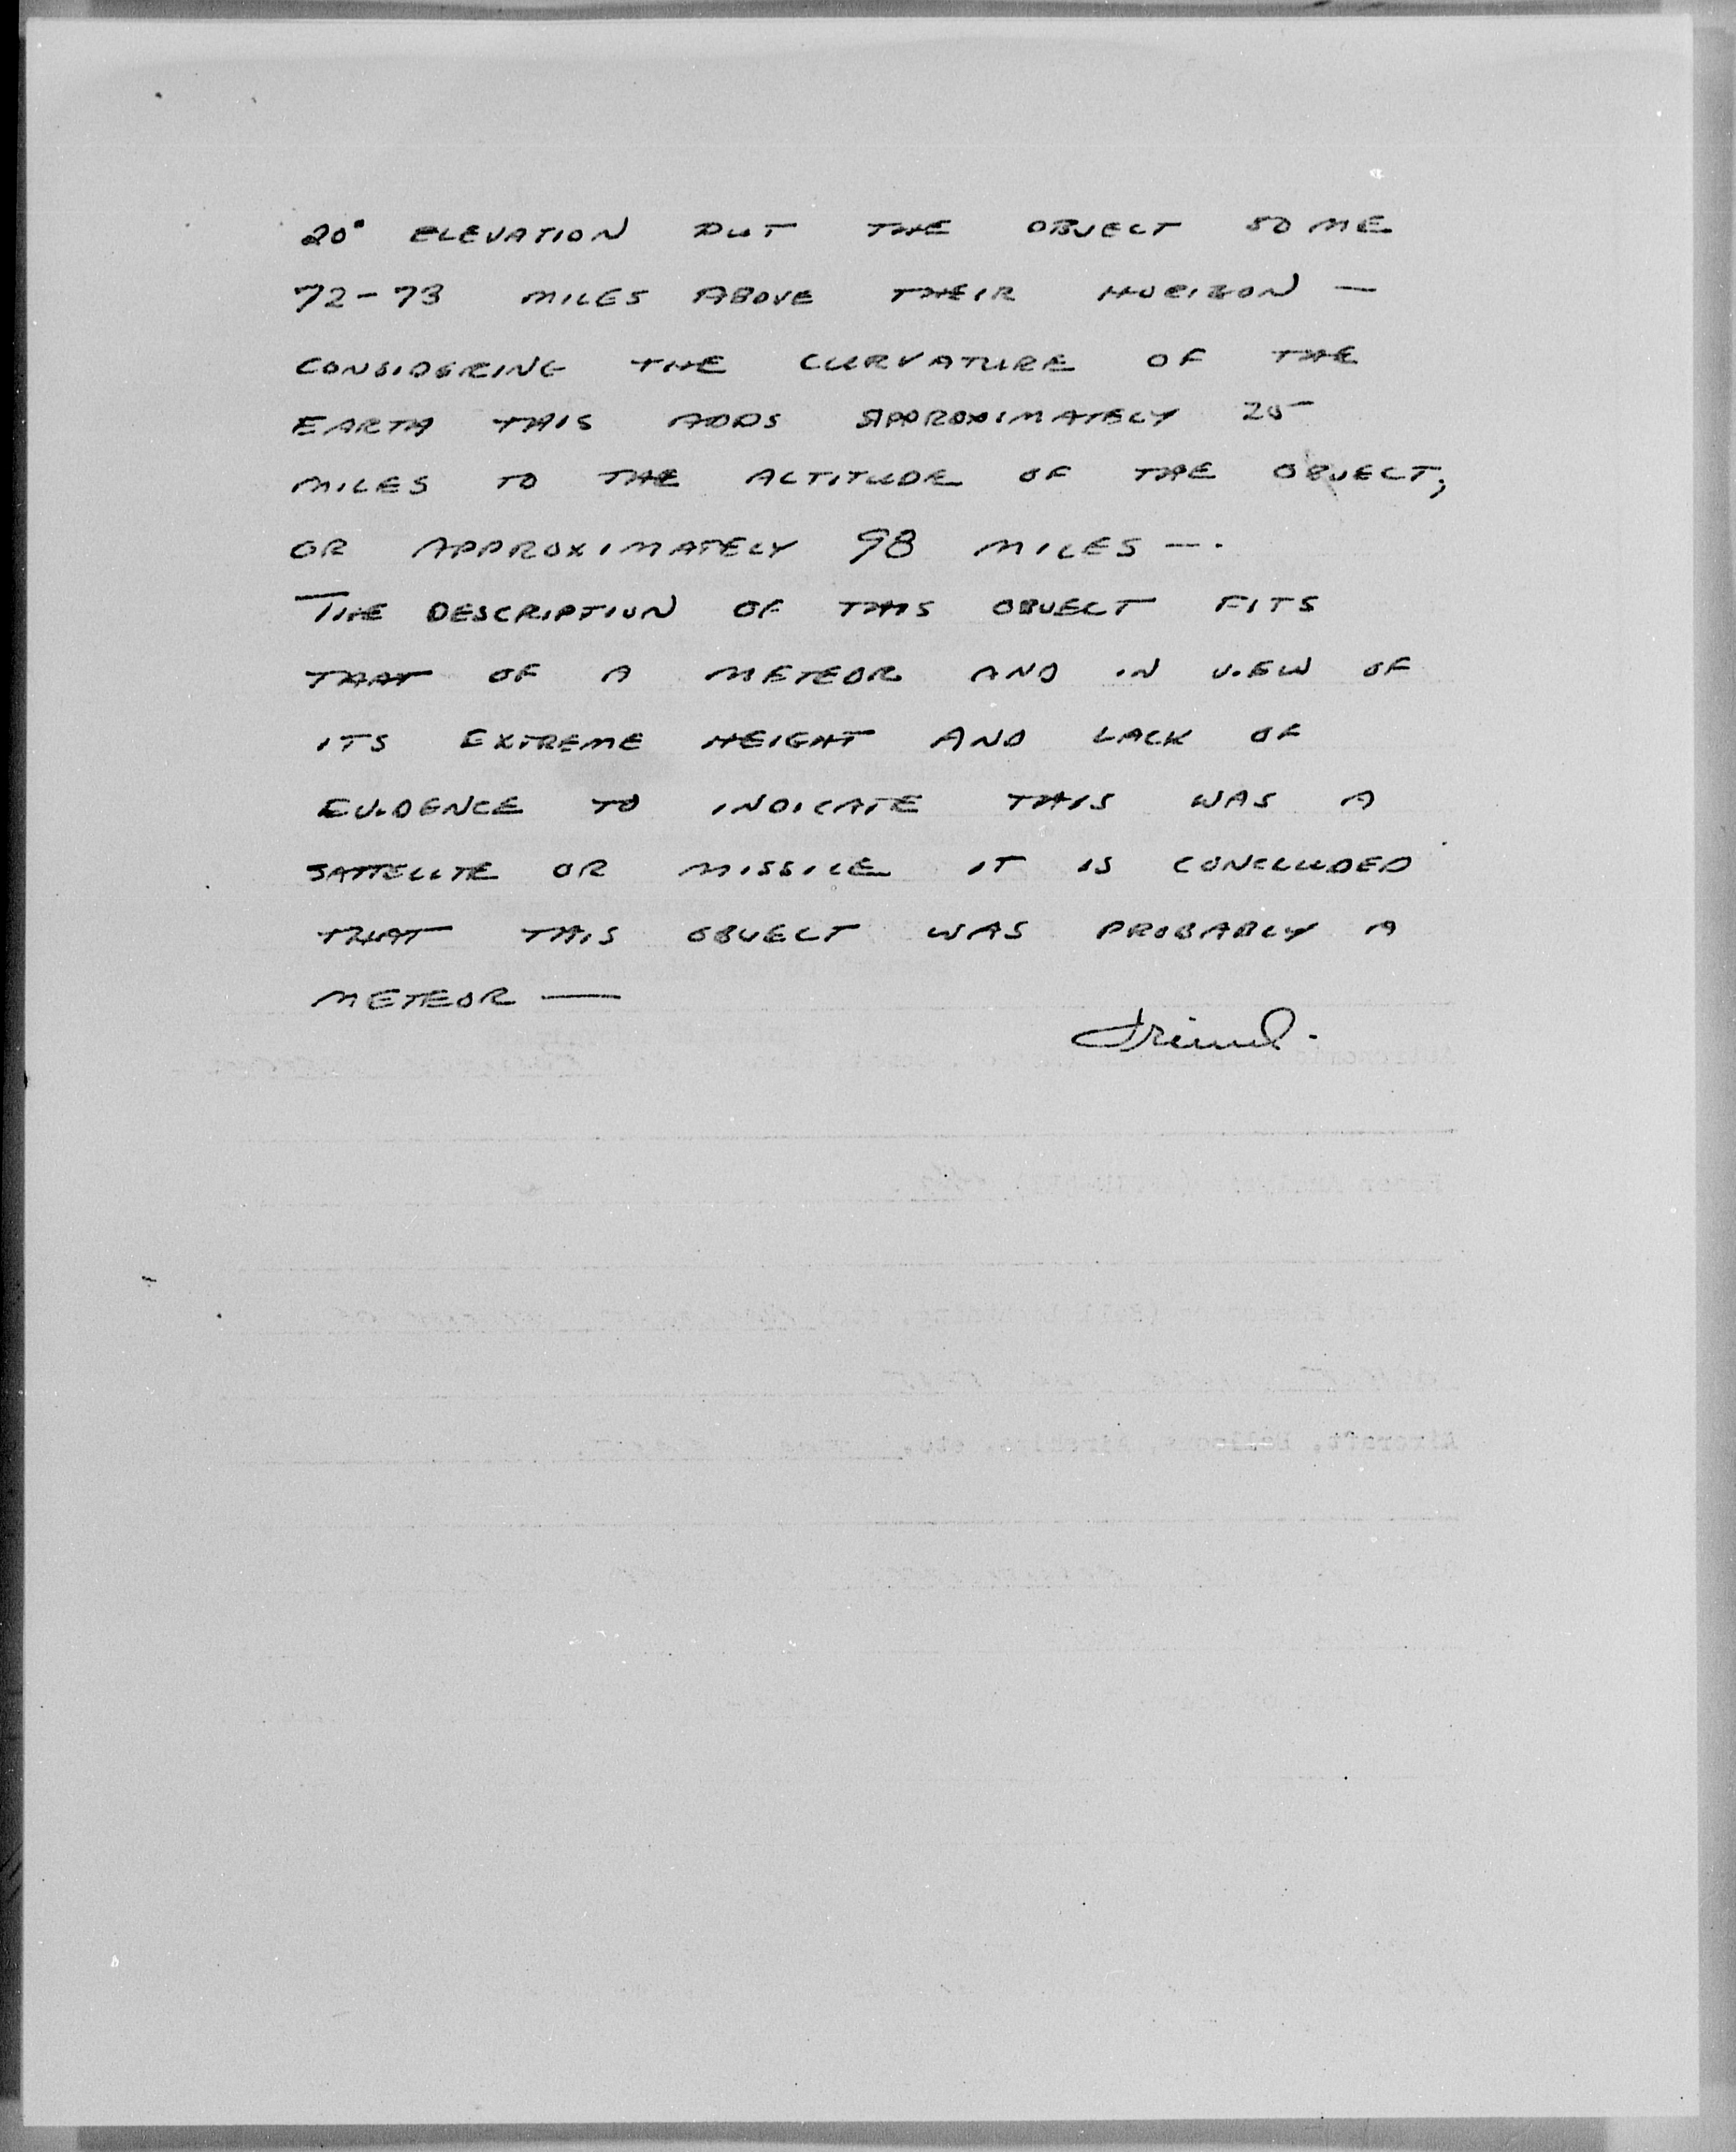 20° ELEVATION PUT THE OBJECT SOME
72-73 MILES ABOVE THEIR HORIZON —
CONSIDERING THE CURVATURE OF THE
EARTH THIS ADDS APPROXIMATELY 25
MILES TO THE ALTITUDE OF THE OBJECT,
OR APPROXIMATELY 98 MILES —.
THE DESCRIPTION OF THIS OBJECT FITS
THAT OF A METEOR AND IN VIEW OF
ITS EXTREME HEIGHT AND LACK OF
EVIDENCE TO INDICATE THIS WAS A
SATTELLITE OR MISSILE IT IS CONCLUDED
THAT THIS OBJECT WAS PROBABLY A
METEOR —